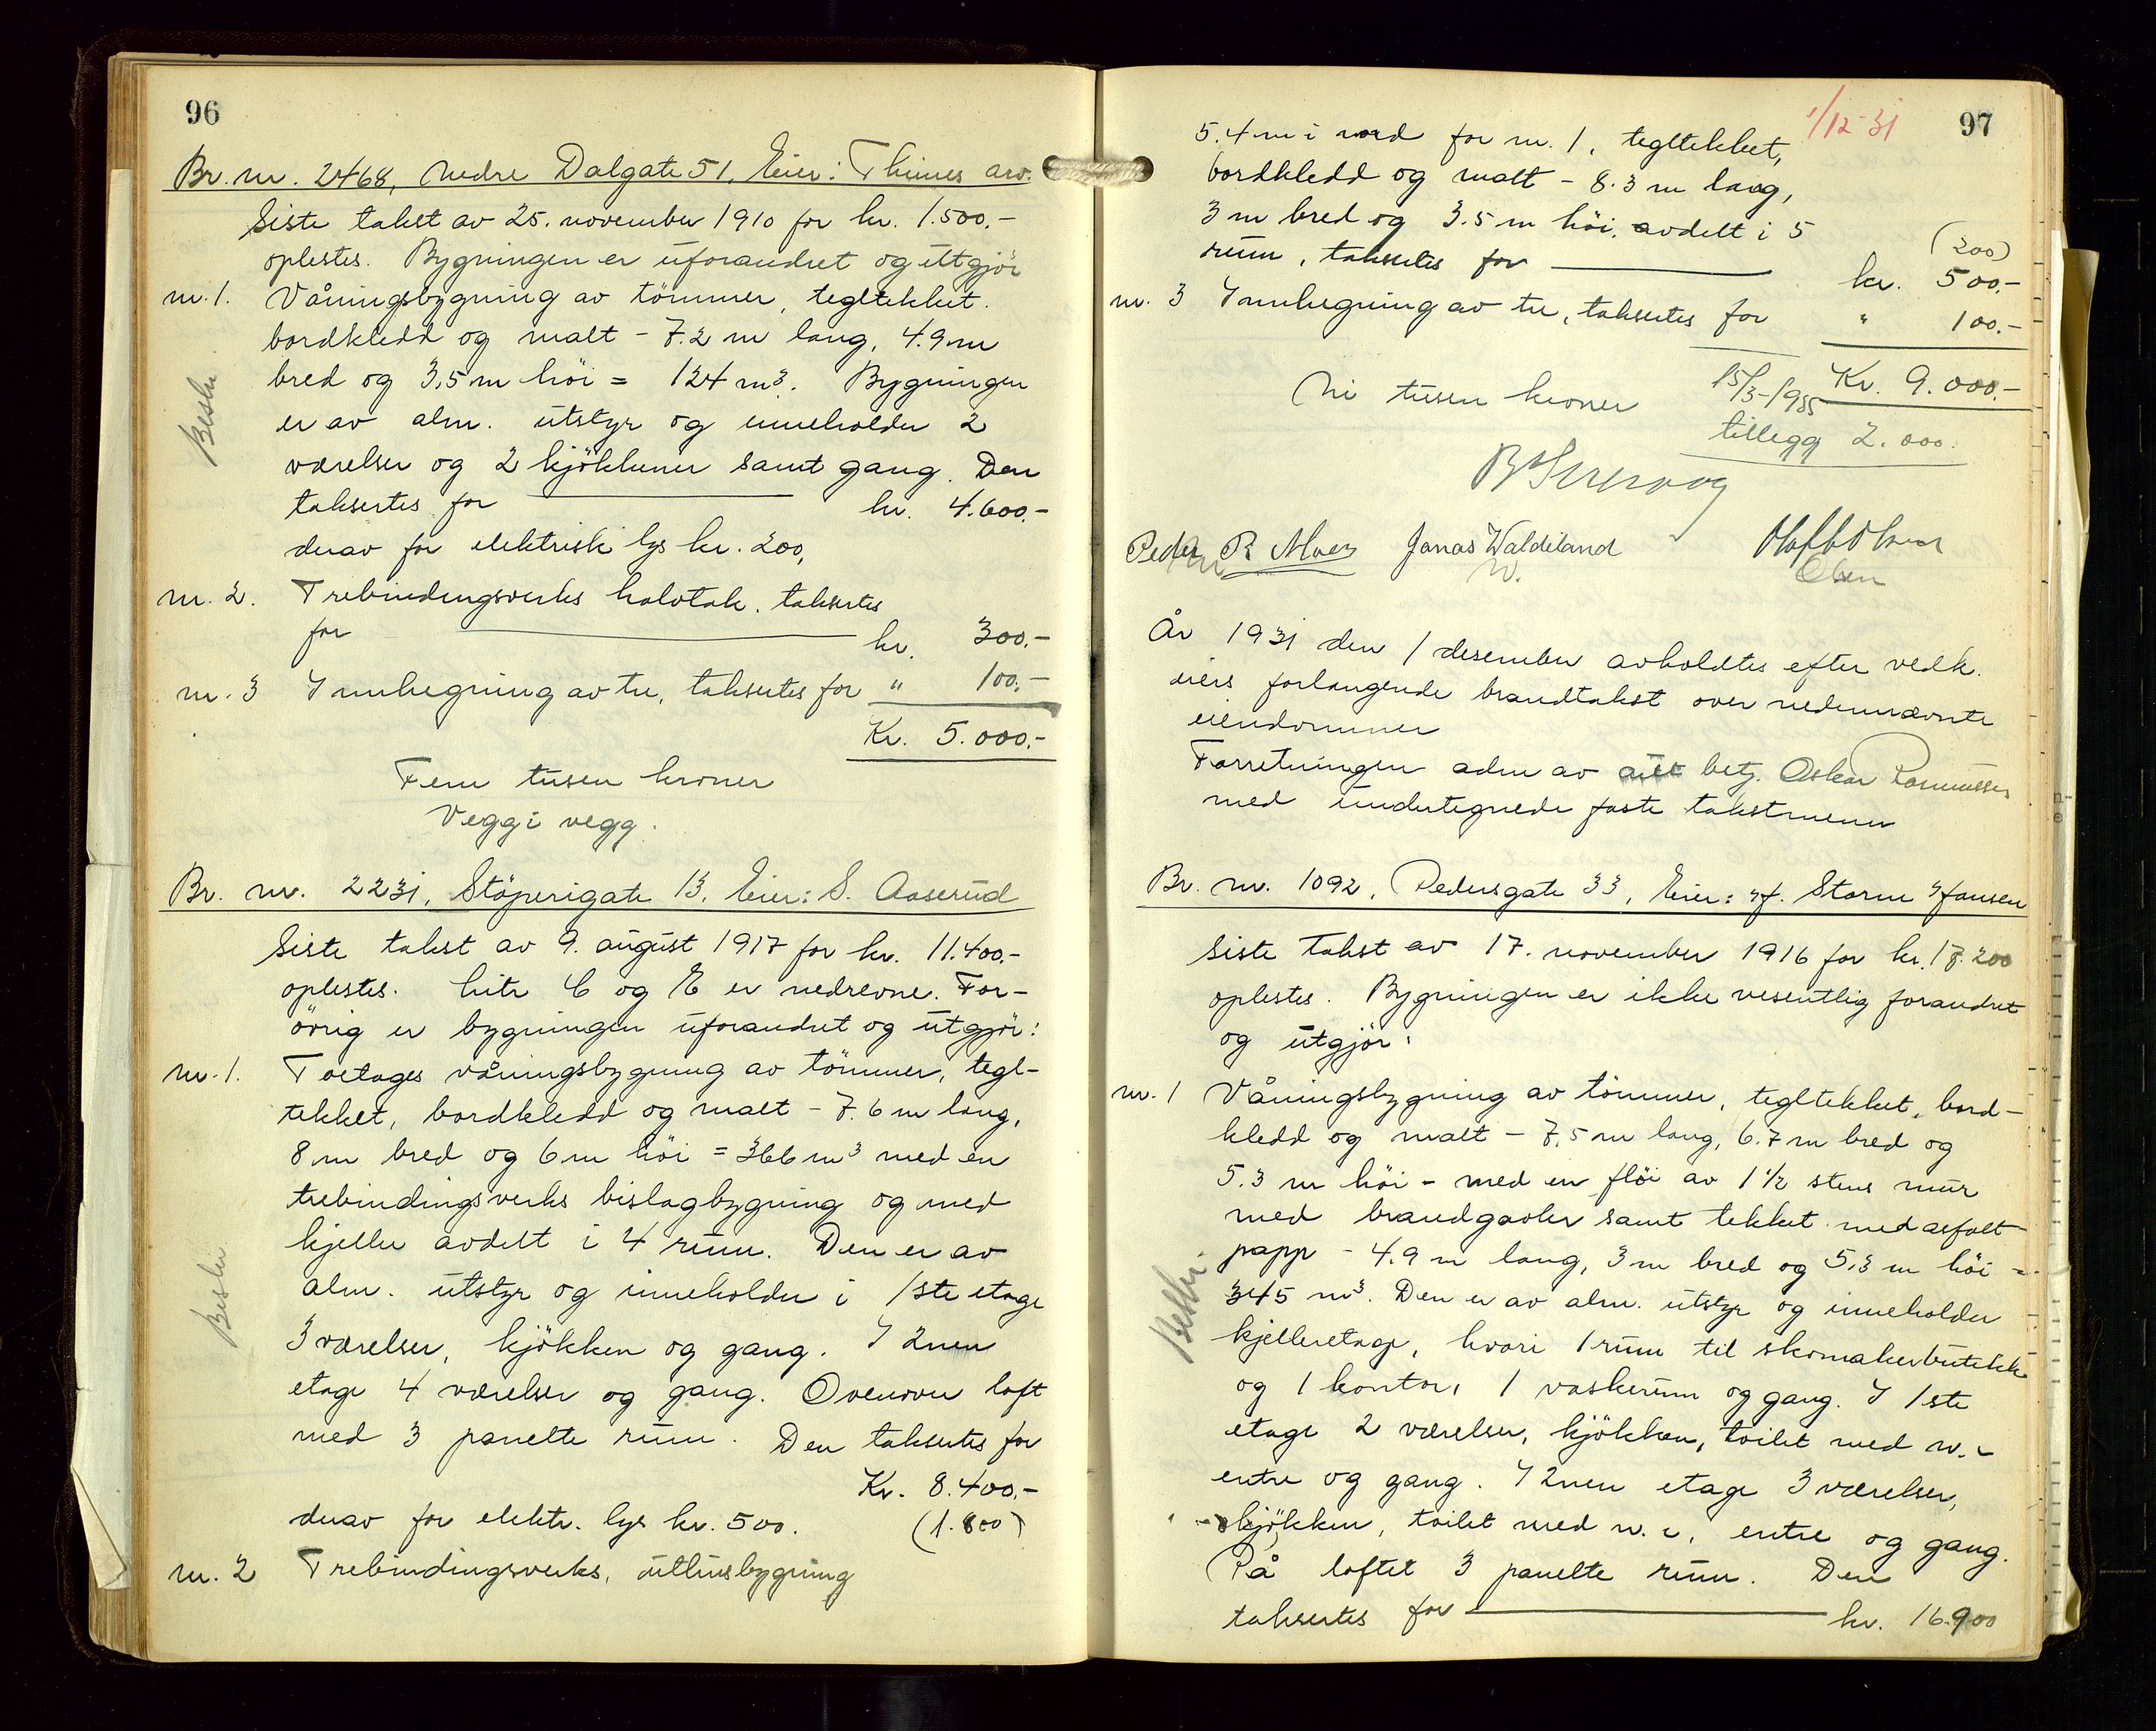 96
Br. nr. 2468, Nedre Dalgate 51. Eier: Thimes arv.
Siste takst av 25. november 1910 for kr. 1.500.-
oplestes. Bygningen er uforandret og utgjör
nr. 1. Våningsbygning av tömmer, tegltekket.
bordkledd og malt - 7.2 m lang, 4.9 m
bred og 3,5 m höi = 124 m3. Bygningen
er av alm. utstyr og inneholder 2
værelser og 2 kjökkener samt gang. Den
taksertes for kr. 4.600.-
derav for elektrisk lys kr. 200,
nr. 2. Trebindingsverks halvtak. taksertes
for kr. 300.-
nr. 3 Innhegning av tre, taksertes for " 100.-
Kr. 5.000.-
Fem tusen kroner
Vegg i vegg.
Br. nr. 2231, Stöperigate 13. Eier: S. Aaserud
Siste takst av 9. august 1917 for kr. 11.400.-
oplestes. Litr C og E er nedrevne. For-
övrig er bygningen uforandret og utgjör:
nr. 1. Toetages våningsbygning av tömmer, tegl-
tekket, bordkledd og malt - 7.6 m lang,
8 m bred og 6 m höi = 366 m3 med en
trebindingsverks bislagbygning og med
kjeller avdelt i 4 rum. Den er av
alm. utstyr og inneholder i 1ste etage
3 værelser, kjökken og gang. I 2nen
etage 4 værelser og gang. Ovenover loft
med 3 panelte rum. Den taksertes for
Kr. 8.400.-
derav for elektr. lys kr. 500. (1.800)
nr. 2 Trebindingsverks, uthusbygning
1/12-31 97
5.4 m i nord for nr. 1, tegltekket,
bordkledd og malt - 8.3 m lang,
3 m bred og 3.5 m höi. avdelt i 5
(200)
rum, taksertes for kr. 500.-
nr. 3 Innhegning av tre, taksertes for " 100.-
Kr. 9.000.-
Ni tusen kroner 15/3-1935
tillegg 2.000.
Peder R Moen Jonas Waldeland
W. Olsen
År 1931 den 1 desember avholdtes efter vedk.
eiers forlangende brandtakst over nedennævnte
eiendommer
Forretningen adm av betj. Oskar Rasmussen
med undertegnede faste takstmenn
Br. nr. 1092, Pedersgate 33, Eier: H. Storm Hansen
Siste takst av 17. november 1916 for kr. 18.200
oplestes. Bygningen er ikke vesentlig forandret
og utgjör:
nr. 1 Våningsbygning av tömmer, tegltekket, bord-
kledd og malt - 7,5 m lang, 6.7 m bred og
5.3 m höi - med en flöi av 1 1/2 stens mur
med brandgavler samt tekket med asfalt
papp - 4.9 m lang, 3 m bred og 5,3 m höi =
345 m3. Den er av alm. utstyr og inneholder
kjelleretage, hvori 1 rum til skomakerbutikk
og 1 kontor, 1 vaskerum og gang. I 1ste
etage 2 værelser, kjökken, toilet med w.c
entre og gang. I 2nen etage 3 værelser,
kjökken, toilet med w.c, entre og gang.
På loftet 3 panelte rum. Den
taksertes for kr. 16.900